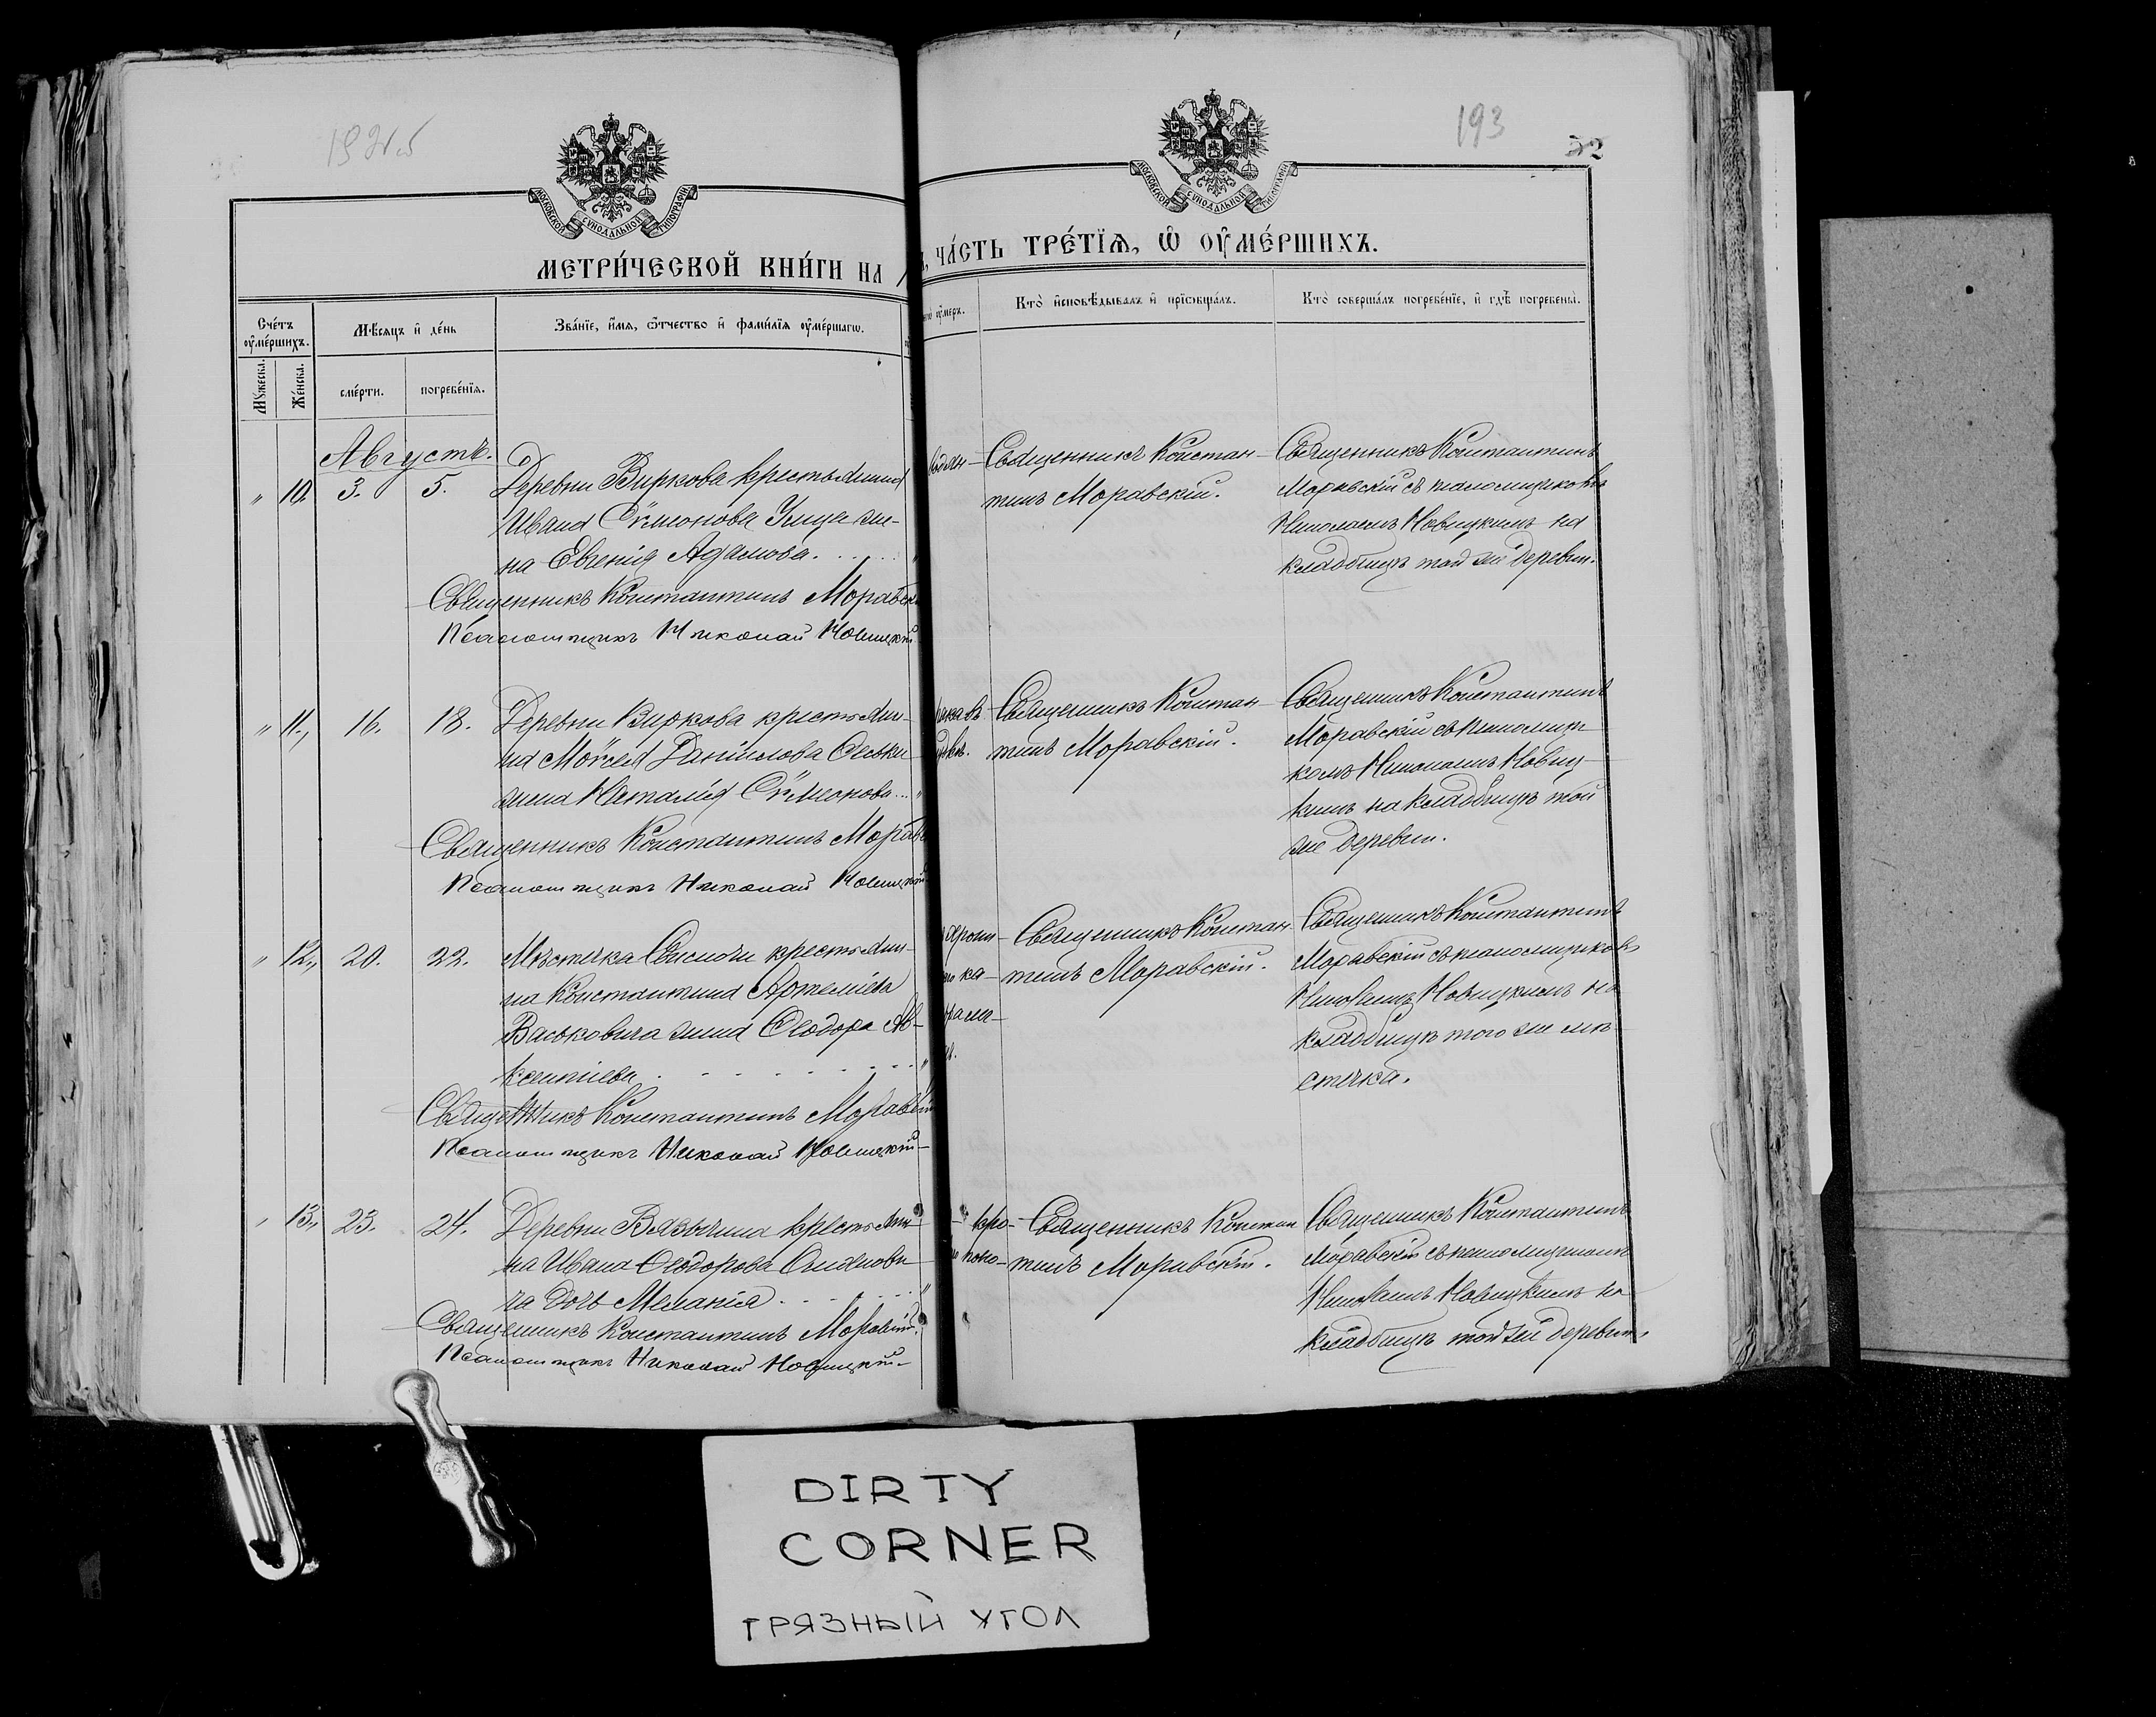 193
МОСКОВСКОЙ СѴНОДАЛЬНОЙ ТИПОГРАФІИ
МОСКОВСКОЙ СѴНОДАЛЬНОЙ ТИПОГРАФІИ
МЕТРИ́ЧЕСКОЙ КНИ́ГИ НА
ЧА́СТЬ ТРЕ́ТІѦ, Ѡ ОУМЕ́РШИХЪ.
Сче́тъ оуме́ршихъ.
Мѣ́сѧцъ и де́нь
Зва́нїе, и́мѧ, ѻ́тчество и фами́лїѧ оуме́ршагѡ.
оумеръ.
Кто̀ исповѣ́дывалъ и прїѡбща́лъ.
Кто̀ соверша́лъ погребе́нїе, и гдѣ̀ погребены̀.
Мꙋ́жеска.
Же́нска.
сме́рти.
погребе́нїѧ.
Августъ.
" 10. 3. 5. Деревни Виркова крестьянина
Ивана Сѵмеонова Улица же-
на Евгенія Адамова.
Священникъ Константинъ
Псаломщикъ Николай Новицкій
Священникъ Констан-
тинъ Моравскій.
Священникъ Константинъ
Моравскій съ псаломщикомъ
Николаемъ Новицкимъ на
кладбищѣ той же деревни.
" 11. 16. 18. Деревни Виркова крестьяни-
на Моѵсея Даніилова
жена Наталія Сѵмеонова
Священникъ Константинъ
Псаломщикъ Николай Новицкій
Священникъ Констан-
тинъ Моравскій.
Священникъ Константинъ
Моравскій съ псаломщи-
комъ Николаемъ Новиц-
кимъ на кладбищѣ той
же деревни.
" 12. 20. 22. Мѣстечка Свислочи крестьяни-
на Константина Артеміева
Васьковича жена Ѳеодора Ав-
ксентіева
Священникъ Константинъ
Псаломщикъ Николай Новицкій
Священникъ Констан-
тинъ Моравскій.
Священникъ Константинъ
Моравскій съ псаломщикомъ
Николаемъ Новицкимъ на
кладбищѣ того же мѣ-
стечка.
" 13. 23. 24. Деревни Вязычина крестьяни-
на Ивана Ѳеодорова
ча дочь Меланія
Священникъ Константинъ Моравскій.
Псаломщикъ Николай Новицкій
Священникъ Констан
тинъ Моравскій.
Священникъ Константинъ
Моравскій съ псаломщикомъ
Николаемъ Новицкимъ на
кладбищѣ той же деревни.
DIRTY
CORNER
ГРЯЗНЫЙ УГОЛ